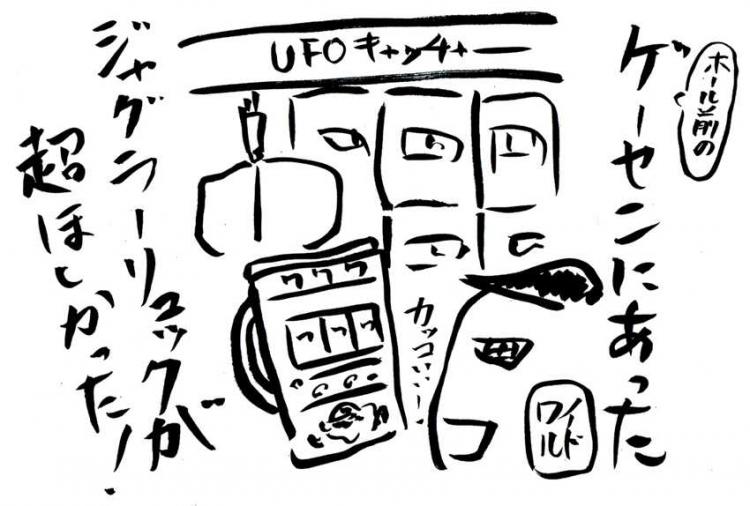 ホール前の
ゲーセンにあった
UFOキャッチャー
ジャグラーリュックが
超ほしかった!
カッコいいー
ワイルド
777
777